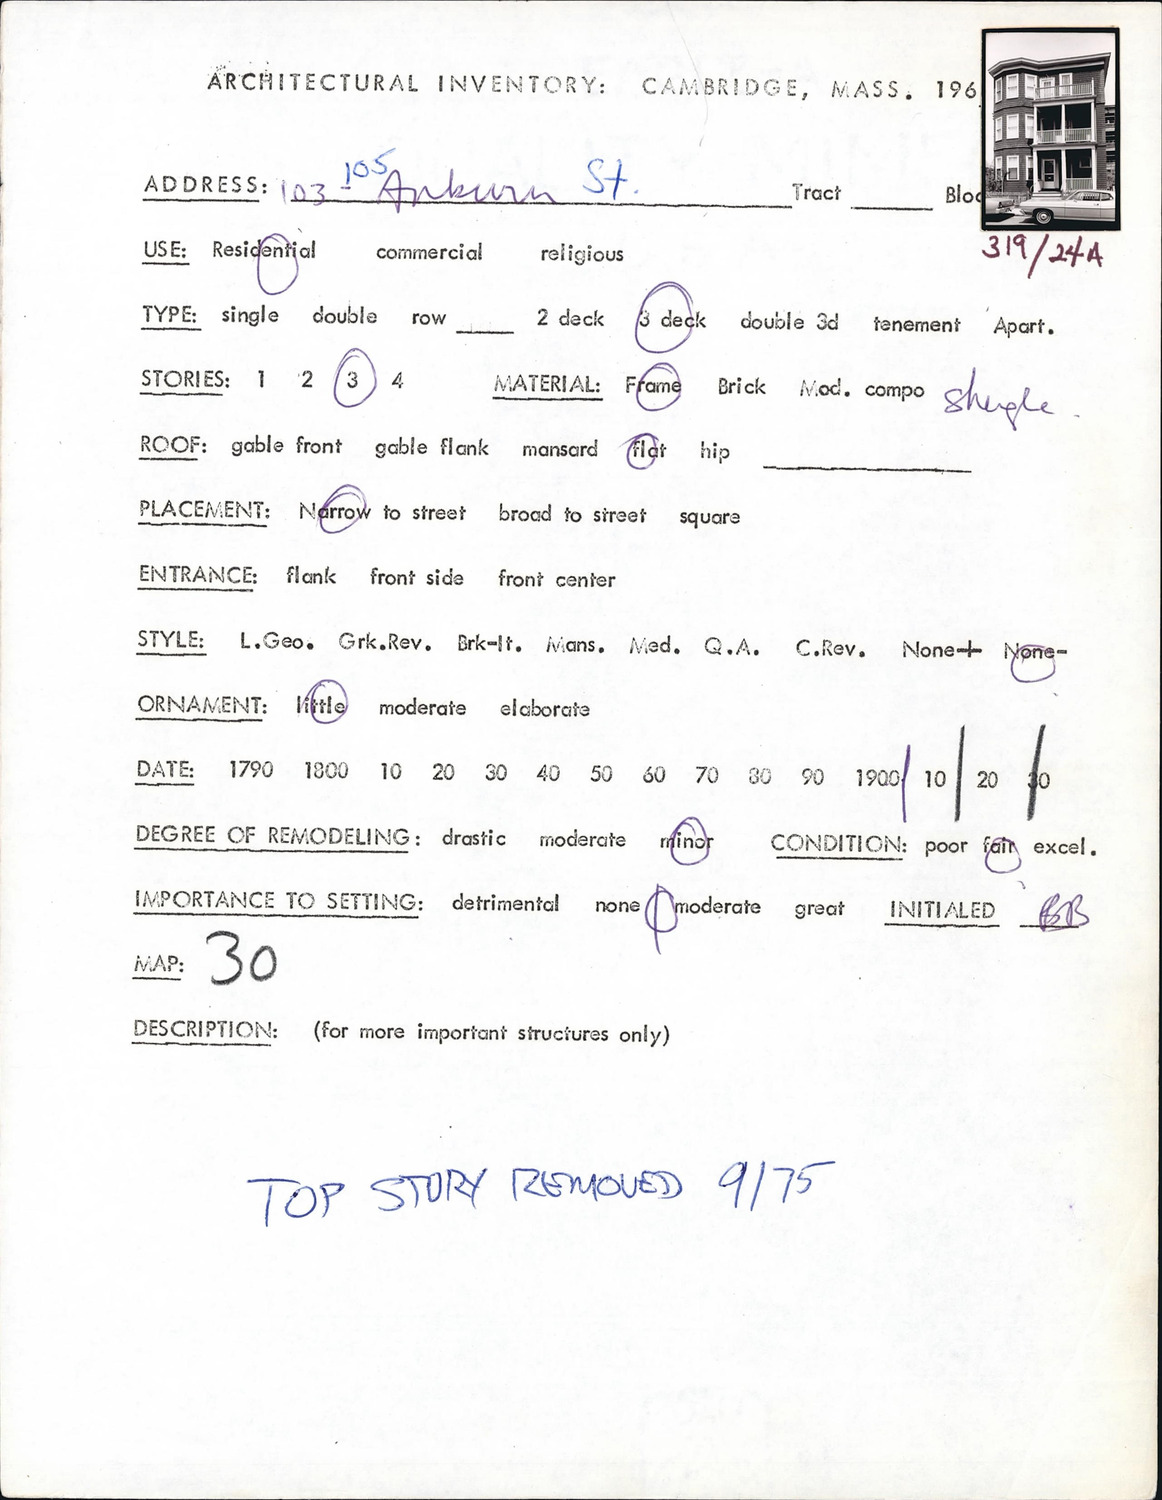 ARCHITECTURAL INVENTORY: CAMBRIDGE, MASS. 196
ADDRESS: 103-105 Auburn St. Tract ______ Bloc
319/24A
USE: Residential commercial religious
TYPE: single double row ____ 2 deck 3 deck double 3d tenement Apart.
STORIES: 1 2 3 4 MATERIAL: Frame Brick Mod. compo Shingle
ROOF: gable front gable flank mansard flat hip ______
PLACEMENT: Narrow to street broad to street square
ENTRANCE: flank front side front center
STYLE: L.Geo. Grk.Rev. Brk-It. Mans. Med. Q.A. C.Rev. None+ None-
ORNAMENT: little moderate elaborate
DATE: 1790 1800 10 20 30 40 50 60 70 80 90 1900 10 20 30
DEGREE OF REMODELING: drastic moderate minor CONDITION: poor fair excel.
IMPORTANCE TO SETTING: detrimental none moderate great INITIALED
MAP: 30
DESCRIPTION: (for more important structures only)
TOP STORY REMOVED 9/75